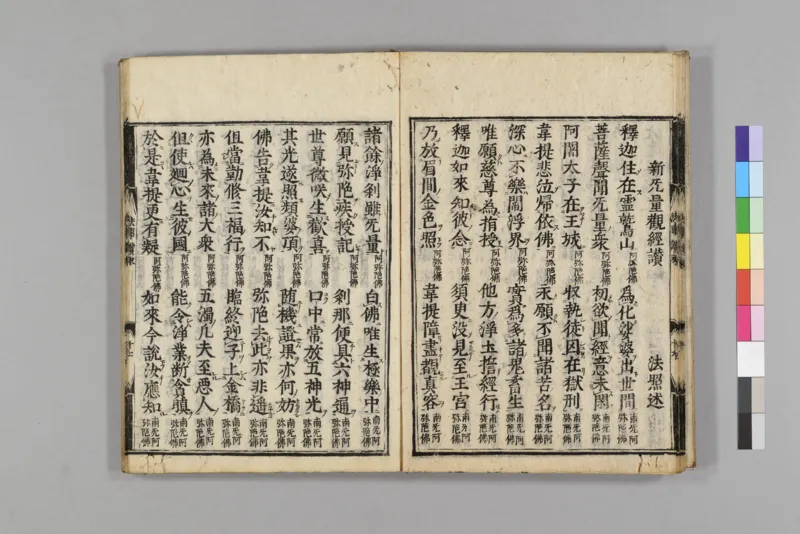 新无量觀經讃　法照述
釋迦住在靈鷲山 阿弥陁佛 為化娑婆出世間 南无阿弥陁佛
菩薩聲聞无量衆 阿弥陁佛 初欲聞經意未閑 南无阿弥陁佛
阿闍太子在王城 阿弥陁佛 収執徒囚在獄刑 南无阿弥陁佛
韋提悲泣歸依佛 阿弥陁佛 永願不聞諸苦名 南无阿弥陁佛
深心不樂閻浮界 阿弥陁佛 實為多諸鬼畜生 南无阿弥陁佛
唯願慈尊為指授 阿弥陁佛 他方淨土擔經行 南无阿弥陁佛
釋迦如來知彼念 阿弥陁佛 須臾没見至王宮 南无阿弥陁佛
乃放眉間金色照 阿弥陁佛 韋提障盡覩真容 南无阿弥陁佛
諸餘淨刹雖无量 阿弥陁佛 白佛唯生極樂中 南无阿弥陁佛
願見弥陁疾授記 阿弥陁佛 刹那便具六神通 南无阿弥陁佛
世尊微咲生歡喜 阿弥陁佛 口中常放五神光 南无阿弥陁佛
其光遂照頻婆頂 阿弥陁佛 随機證果亦何妨 南无阿弥陁佛
佛告韋提汝知不 阿弥陁佛 弥陁去此亦非遥 南无阿弥陁佛
但當勤修三福行 阿弥陁佛 臨終迎子上金橋 南无阿弥陁佛
亦為未來諸大衆 阿弥陁佛 五濁凡夫至悪人 南无阿弥陁佛
但使廻心生彼國 阿弥陁佛 能令淨業断貪瞋 南无阿弥陁佛
於是韋提更有疑 阿弥陁佛 如來今説汝應知 南无阿弥陁佛